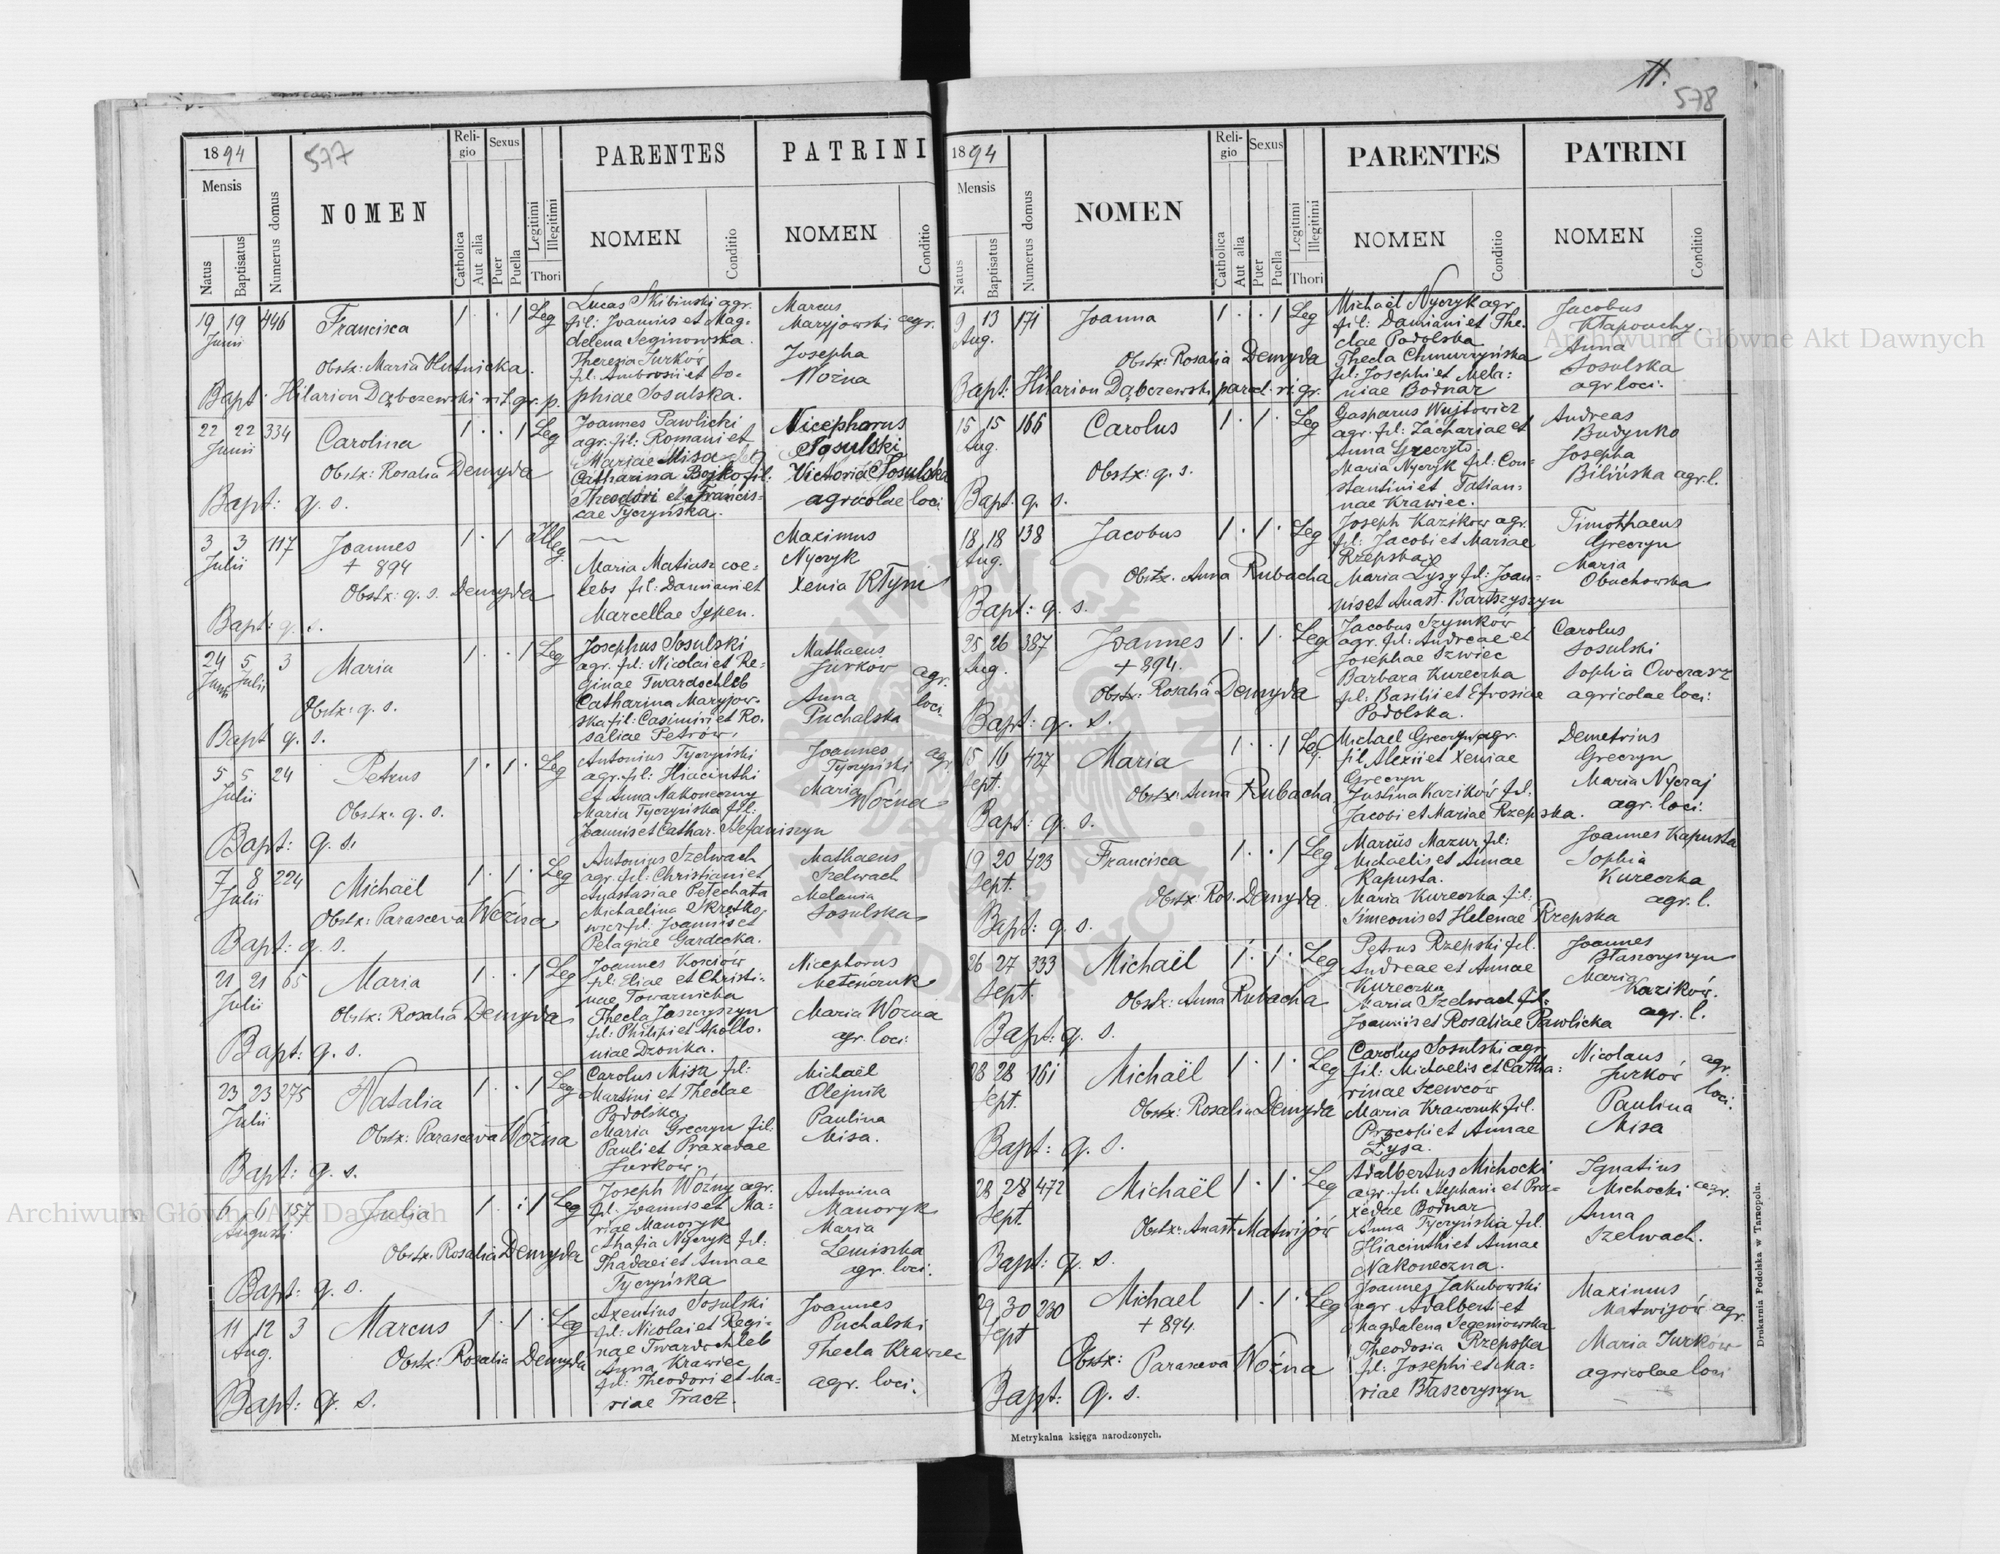 577
1894
Mensis
Natus
Baptisatus
Numerus domus
NOMEN
Religio
Catholica
Aut alia
Sexus
Puer
Puella
Legitimi
Illegitimi
Thori
PARENTES
NOMEN
Conditio
PATRINI
NOMEN
Conditio
19 19 446 Francisca 1 . . 1 Leg
Junii
Obstx: Maria Hutnicka.
Bapt. Hilarion Dąbczewski rit. gr. p.
Lucas Skibinski agr.
fil: Joannis et Mag-
delena Seginowska.
Theresia Jurków
fil. Ambrosii et So-
phiae Sosulska.
Marcus
Maryjowski agr.
Josepha
Woźna
22 22 334 Carolina 1 . . 1 Leg
Junii
Obstx: Rosalia Demyda
Bapt: q. s.
Joannes Pawlicki
agr. fil: Romani et
Mariae Misa
Catharina Bojko fil:
Theodori et Francis-
cae Tyczyńska.
Nicephorus
Sosulski
Victoria Sosulska
agricolae loci
3 3 117 Joannes 1 . 1 Illeg.
Julii + 894
Obstx: q. s. Demyda
Bapt: q. s.
Maria Matiasz coe-
lebs fil: Damiani et
Marcellae Sypen.
Maximus
Nyczyk
Xenia Kłym
24 5 3 Maria 1 . . 1 Leg
Junii Julii
Obstx: q. s.
Bapt q. s.
Josephus Sosulski
agr. fil: Nicolai et Re-
ginae Twardochleb
Catharina Maryjow-
ska fil: Casimiri et Ro-
saliae Petrów.
Mathaeus
Jurkow agr.
Anna loci.
Puchalska
5 5 24 Petrus 1 . 1 . Leg
Julii
Obstx. q. s.
Bapt: q. s.
Antonius Tyczyński
agr. fil: Hiacinthi
et Anna Nakoneczny
Maria Tyczyńska fil:
Joannis et Cathar. Stefaniszyn
Joannes agr.
Tyczyński
Maria
Woźna
7 8 224 Michaël 1 . 1 . Leg
Julii
Obstx: Parasceva Woźna
Bapt: q. s.
Antonius Szelwach
agr. fil: Christiani et
Anastasiae Pełechata
Michaelina Skrętko-
wicz fil. Joannis et
Pelagiae Gardecka.
Mathaeus
Szelwach
Melania
Sosulska
21 21 65 Maria 1 . . 1 Leg
Julii
Obstx: Rosalia Demyda
Bapt: q. s.
Joannes Kościów
fil: Eliae et Christi-
nae Towarnicka
Thecla Jaszczyszyn
fil: Philipi et Apollo-
niae Dzonka.
Nicephorus
Maria Woźna
agr. loci.
23 23 275 Natalia 1 . . 1 Leg
Julii
Obstx: Parasceva Woźna
Bapt: q. s.
Carolus Misa fil:
Martini et Theclae
Podolska
Maria Greczyn fil:
Pauli et Praxedae
Jurków.
Michaël
Olejnik
Paulina
Misa.
6 6 157 Julia 1 . . 1 Leg
Augusti
Obstx: Rosalia Demyda
Bapt: q. s.
Joseph Woźny agr.
fil: Joannis et Ma-
riae Manoryk
Ahafia Nyczyk fil:
Thadaei et Annae
Tyczyńska
Antonina
Manoryk
Maria
Lemiszka
agr. loci.
11 12 3 Marcus 1 . 1 . Leg
Aug.
Obstx: Rosalia Demyda
Bapt: q. s.
Axentius Sosulski
fil: Nicolai et Regi-
nae Twardochleb
Anna Krawiec
fil: Theodori et Ma-
riae Tracz.
Joannes
Puchalski
Thecla Krawiec
agr. loci.
11.
578
1894
Mensis
Natus
Baptisatus
Numerus domus
NOMEN
Religio
Catholica
Aut alia
Sexus
Puer
Puella
Legitimi
Illegitimi
Thori
PARENTES
NOMEN
Conditio
PATRINI
NOMEN
Conditio
9 13 171 Joanna 1 . . 1 Leg
Aug.
Obstx: Rosalia Demyda
Bapt: Hilarion Dąbczewski paroch. ri. gr.
Michaël Nyczyk agr.
fil: Damiani et The-
clae Podolska
Thecla Chmurzyńska
fil: Josephi et Mela-
niae Bodnar
Jacobus
Kłapouchy
Anna
Sosulska
agr loci.
15 15 166 Carolus 1 . 1 . Leg
Aug.
Obstx: q. s.
Bapt. q. s.
Gasparus Wujtowicz
agr. fil: Zachariae et
Anna Greczyło
Maria Nyczyk fil: Con-
stantini et Tatian-
nae Krawiec.
Andreas
Budynko
Josepha
Bilińska agr. l.
18 18 138 Jacobus 1 . 1 . Leg
Aug.
Obstx. Anna Rubacha
Bapt: q. s.
Joseph Kazikow agr.
fil: Jacobi et Mariae
Rzepska
Maria Łysy fil: Joan-
nis et Anast. Bartszyszyn
Timothaeus
Greczyn
Maria
Obuchowska
25 26 387 Joannes 1 . 1 . Leg
Aug. + 894.
Obstx: Rosalia Demyda
Bapt: q. s.
Jacobus Szymków
agr. fil: Andreae et
Josephae Szwiec
Barbara Kureczka
fil: Basilii et Efrosiae
Podolska.
Carolus
Sosulski
Sophia Owczarz
agricolae loci.
15 16 427 Maria 1 . . 1 Leg.
Sept.
Obstx: Anna Rubacha
Bapt: q. s.
Michael Greczyn agr.
fil Alexii et Xeniae
Greczyn
Justina Kazików fil:
Jacobi et Mariae Rzepska.
Demetrius
Greczyn
Maria Nyczaj
agr. loci.
19 20 423 Francisca 1 . . 1 Leg
Sept.
Obstx: Ros. Demyda
Bapt: q. s.
Marcus Mazur fil:
Michaelis et Annae
Kapusta.
Maria Kureczka fil:
Simeonis et Helenae Rzepska
Joannes Kapusta
Sophia
Kureczka
agr. l.
26 27 333 Michaël 1 . 1 . Leg
Sept.
Obstx: Anna Rubacha
Bapt: q. s.
Petrus Rzepski fil.
Andreae et Annae
Kureczka
Maria Szelwach fil:
Joannis et Rosaliae Pawlicka
Joannes
Błaszczyszyn
Maria
Kazików.
agr. l.
28 28 161 Michaël 1 . 1 . Leg
Sept.
Obstx: Rosalia Demyda
Bapt: q. s.
Carolus Sosulski agr.
fil: Michaelis et Catha-
rinae Szewców
Maria Krawczuk fil.
Procopi et Annae
Łysa.
Nicolaus agr.
Jurkow loci.
Paulina
Misa
28 28 472 Michaël 1 . 1 . Leg
Sept.
Obstx: Anast. Matwijów
Bapt: q. s.
Adalbertus Michocki
agr. fil: Stephani et Pra-
xedae Bodnar
Anna Tyczyńska fil.
Hiacinthi et Annae
Nakoneczna.
Ignatius
Michocki agr.
Anna
Szelwach.
29 30 230 Michael 1 . 1 . Leg
Sept + 894
Obstx: Parasceva Woźna
Bapt: q. s.
Joannes Jakubowski
agr Adalberti et
Magdalena Segeniowska
Theodosia Rzepska
fil: Josephi et Ma-
riae Błaszczyszyn
Maximus
Matwijów agr.
Maria Jurków
agricolae loci
Metrykalna księga narodzonych.
Drukarnia Podolska w Tarnopolu.
Archiwum Główne Akt Dawnych
Archiwum Główne Akt Dawnych